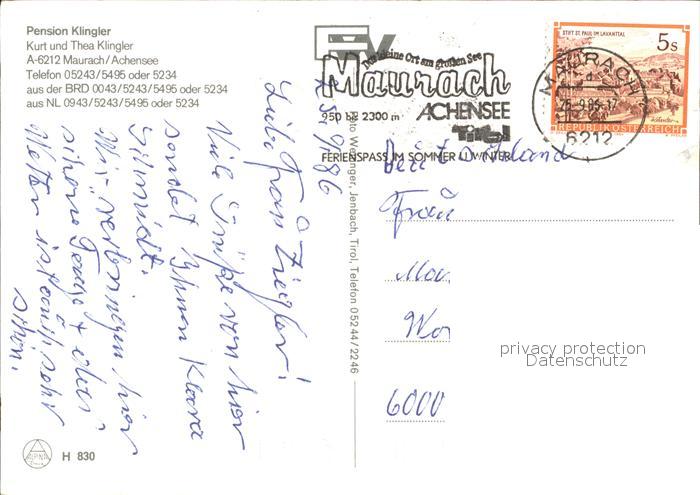 Pension Klingler
Kurt und Thea Klingler
A-6212 Maurach/Achensee
Telefon 05243/5495 oder 5234
aus der BRD 0043/5243/5495 oder 5234
aus NL 0943/5243/5495 oder 5234
Das kleine Ort am großen See
Maurach
ACHENSEE
950 bis 2300 m
Tirol
FERIENSPASS IM SOMMER U. WINTER
STIFT ST. PAUL IM LAVANTTAL
5s
REPUBLIK ÖSTERREICH
MAURACH
6212
Foto Werlinger, Jenbach, Tirol, Telefon 05244/2246
Liebe Frau Ziegler!
Viele Grüße von hier
sendet Ihnen Klara
Schmidt.
Wir verbringen hier
schöne Tage
Wetter ist auch sehr
schön.
Deutschland
Frau
Wor
6000
privacy protection
Datenschutz
ALPINA
H 830